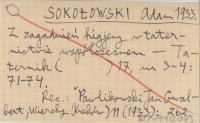 SOKOŁOWSKI Adam 1933.
Z zagadnień higjeny w tater-
nictwie współczesnem — Ta-
ternik ( ) 17 nr 3-4:
71-74.
Rec.: Pawlikowski Jan Gwal-
bert, Wierchy (Kraków) 11 (1933) 262.